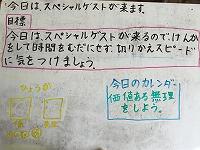 今日は、スペシャルゲストが来ます。
目標
今日は、スペシャルゲストが来るのでけんか
をして時間をむだにせず、切りかえスピード
に気をつけましょう。
ひょうか
今日のカレンダー
価値ある無理
をしよう。